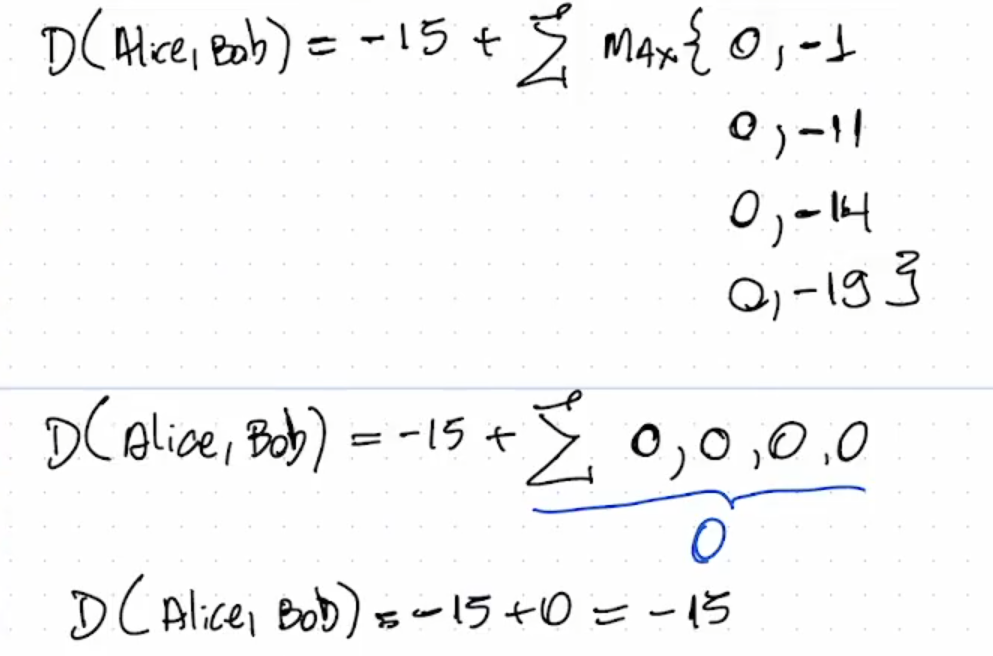 D(Alice, Bob) = -15 + Σ MAX{ 0, -1
0, -11
0, -14
0, -19 }
D(Alice, Bob) = -15 + Σ 0, 0, 0, 0
0
D(Alice, Bob) = -15 + 0 = -15